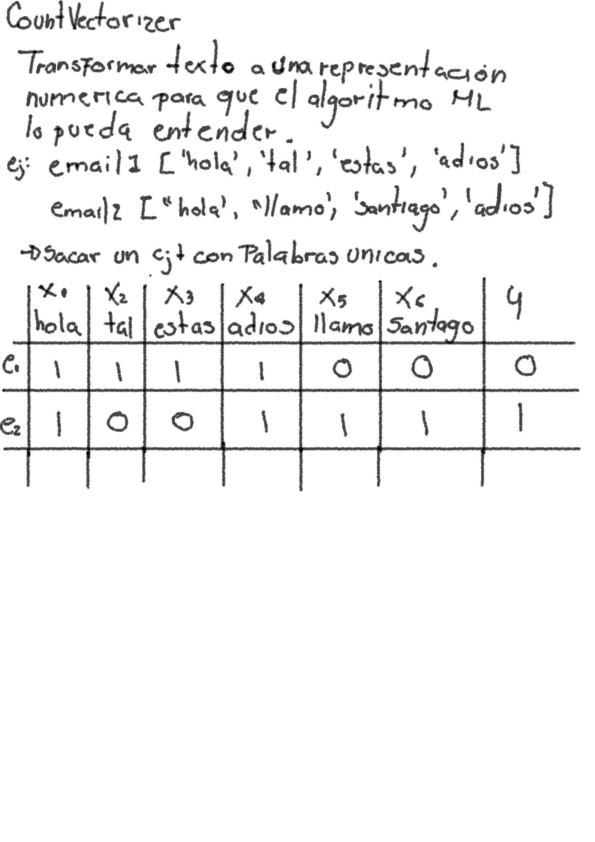 CountVectorizer
Transformar texto a una representación
numerica para que el algoritmo ML
lo pueda entender.
ej: email1 ['hola', 'tal', 'estas', 'adios']
email2 ["hola', "llamo', 'santiago', 'adios']
→ Sacar un cjt con Palabras unicas.
X₁ X₂ X₃ X₄ X₅ X₆ y
hola tal estas adios llamo Santago
e₁ 1 1 1 1 0 0 0
e₂ 1 0 0 1 1 1 1